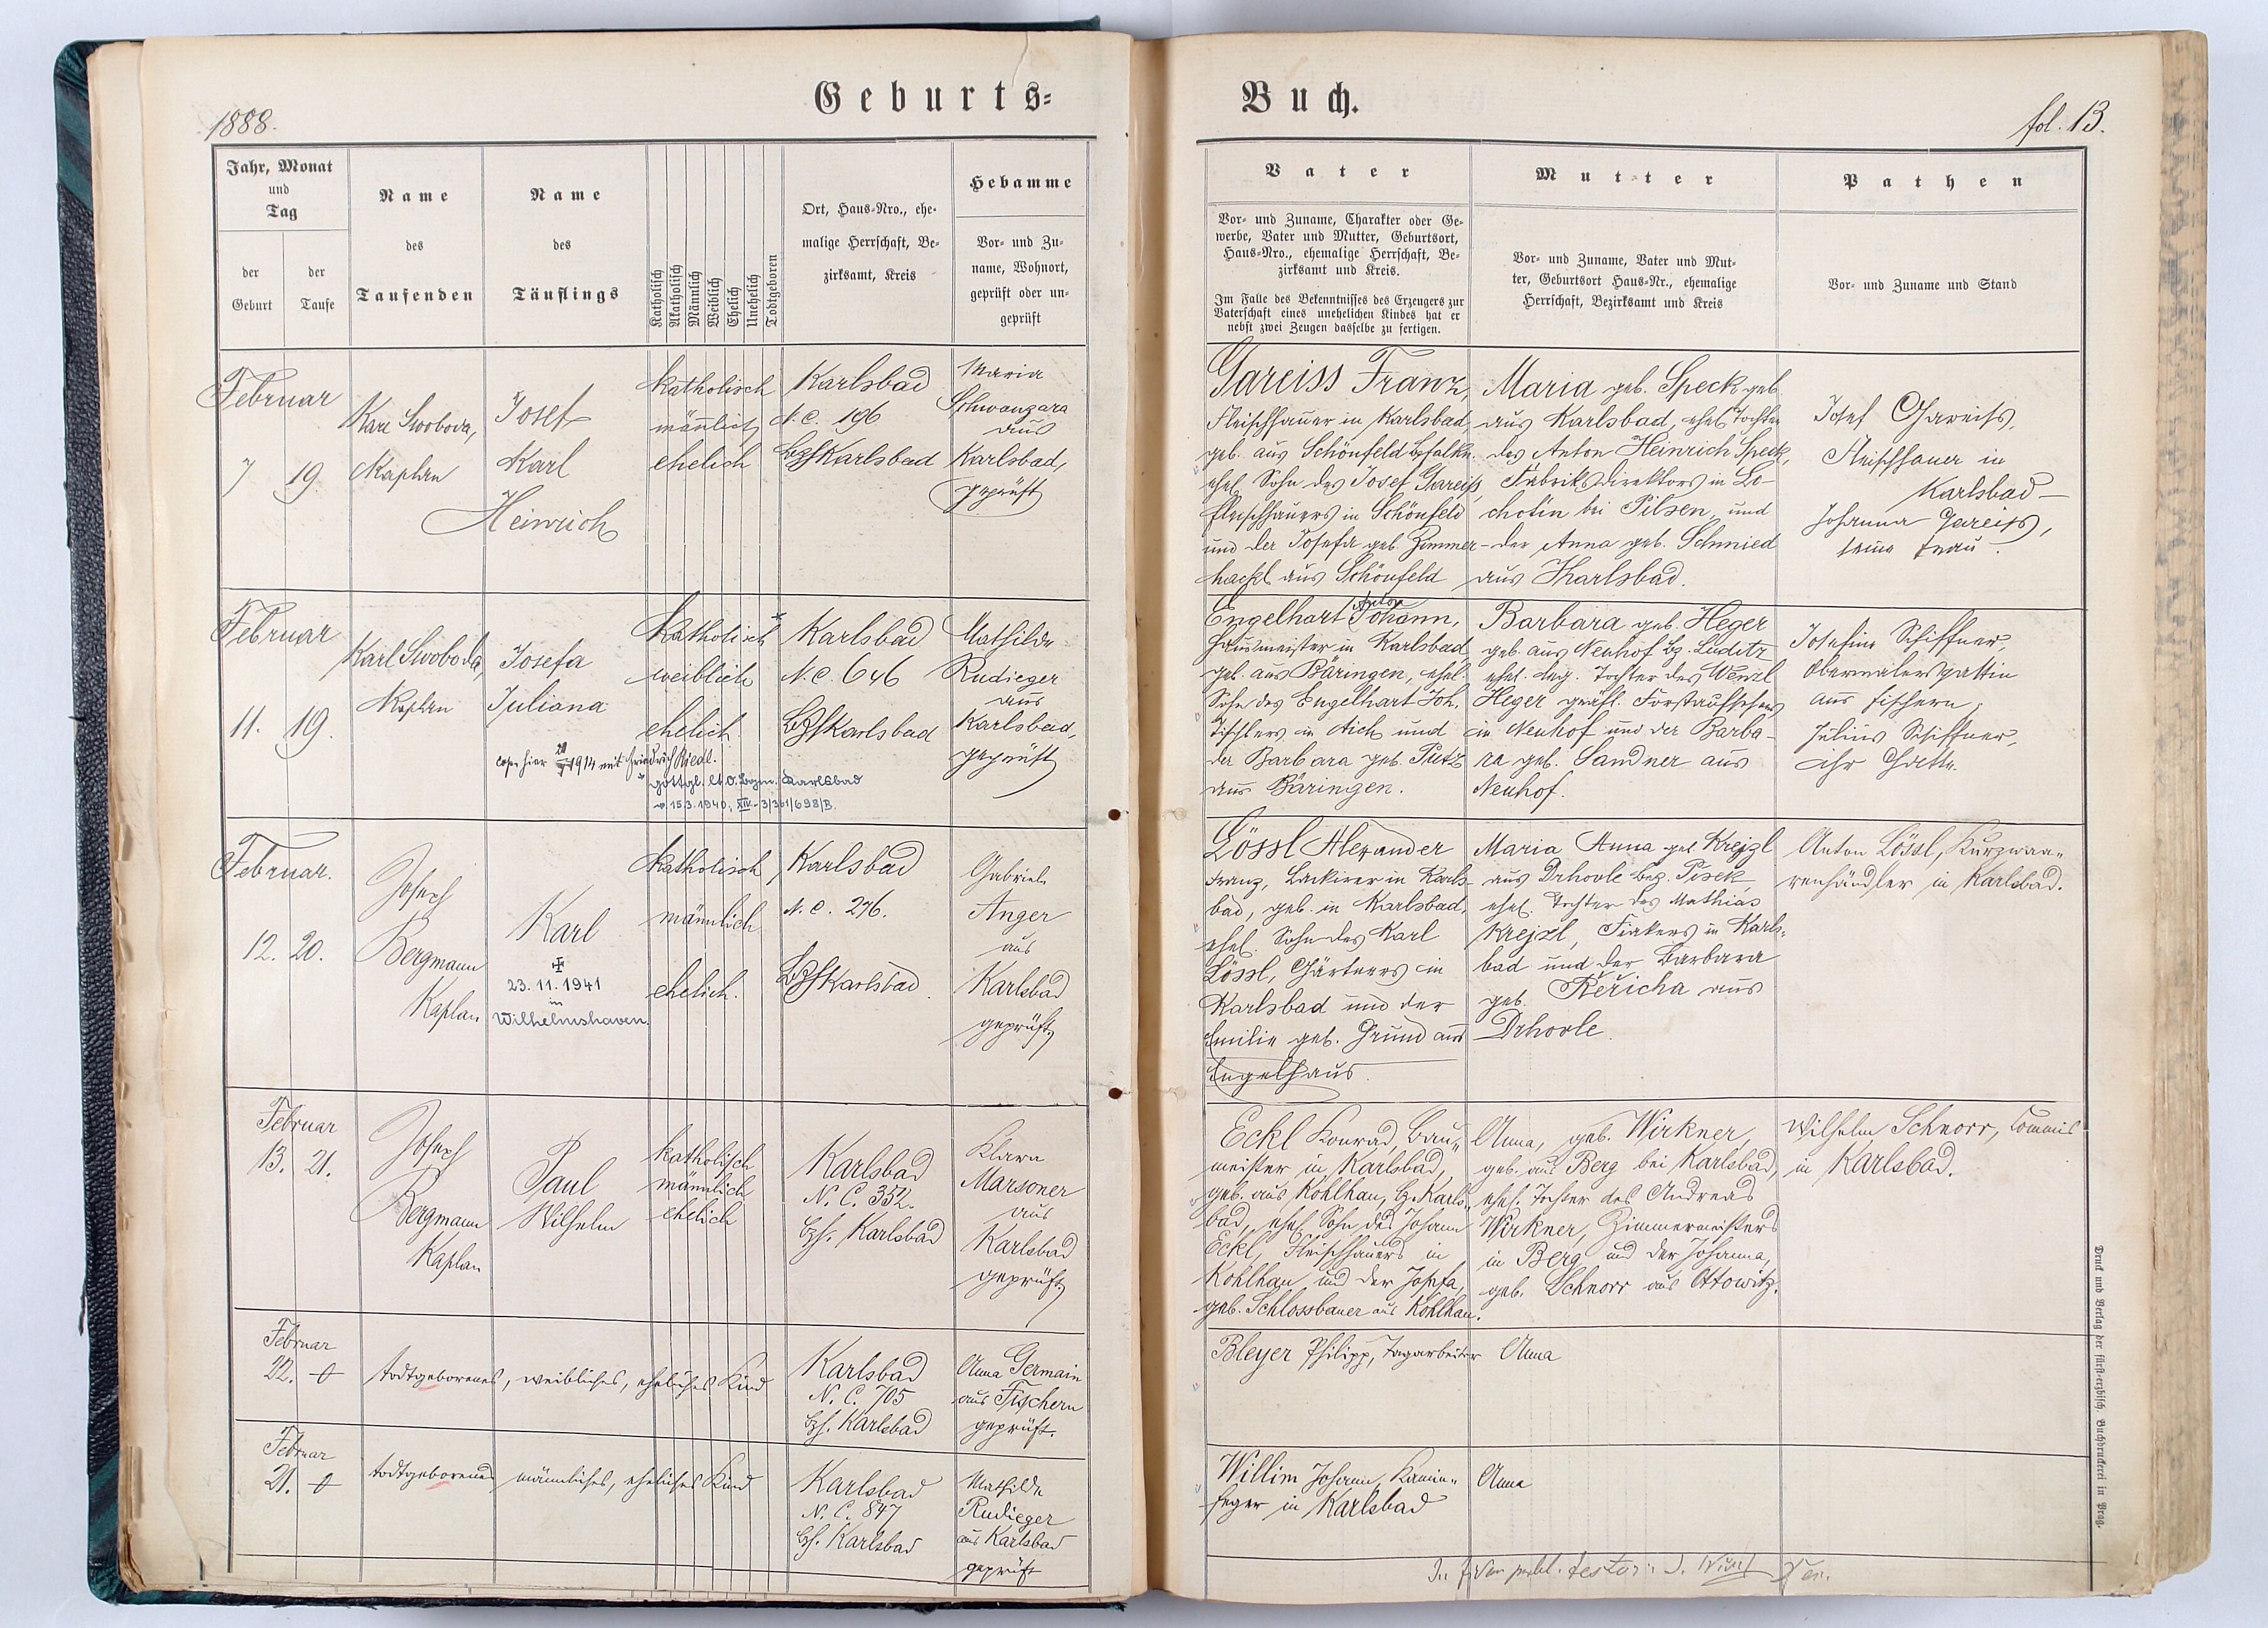 1888.
Geburts-
Jahr, Monat
und
Tag
der
Geburt
der
Taufe
Name
des
Taufenden
Name
des
Täuflings
Katholisch
Akatholisch
Männlich
Weiblich
Ehelich
Unehelich
Todtgeboren
Ort, Haus-Nro., ehe-
malige Herrschaft, Be-
zirksamt, Kreis
Hebamme
Vor- und Zu-
name, Wohnort,
geprüft oder un-
geprüft
Februar
7 19
Karl Swoboda,
Kaplan
Josef
Karl
Heinrich
katholisch
mänlich
ehelich
Karlsbad
N. C. 196
Karlsbad
Maria
Schwangara
aus
Karlsbad,
geprüft
Februar
11. 19.
Karl Swoboda,
Kaplan
Josefa
Juliana
cop. hier 1914 mit Friedrich Riedl.
katholisch
weiblich
ehelich
gottgl. lt. Karlsbad
15.3.1940, XIV-3/301/698/B.
Karlsbad
N. C. 646
Karlsbad
Mathilde
Rudieger
aus
Karlsbad,
geprüft
Februar.
12. 20.
Josef
Bergmann
Kaplan
Karl
✠
23. 11. 1941
in
Wilhelmshaven.
katholisch
männlich
ehelich.
Karlsbad
N. C. 276.
Karlsbad.
Gabriele
Anger
aus
Karlsbad
geprüft
Februar
13. 21.
Josef
Bergmann
Kaplan
Paul
Wilhelm
katholisch
männlich
ehelich
Karlsbad
N. C. 352.
Bzh. Karlsbad
Klara
Marsoner
aus
Karlsbad
geprüft
Februar
22.
todtgeborenes, weibliches, eheliches Kind
Karlsbad
N. C. 705
Bzh. Karlsbad
Anna Germain
aus Fischern
geprüft.
Februar
21.
todtgeborenes männliches, eheliches Kind
Karlsbad
N. C. 847
Bzh. Karlsbad
Mathilde
Rudieger
aus Karlsbad
geprüft
Buch.
fol. 13.
Vater
Vor- und Zuname, Charakter oder Ge-
werbe, Vater und Mutter, Geburtsort,
Haus-Nro., ehemalige Herrschaft, Be-
zirksamt und Kreis.
Im Falle des Bekenntnisses des Erzeugers zur
Vaterschaft eines unehelichen Kindes hat er
nebst zwei Zeugen dasselbe zu fertigen.
Mutter
Vor- und Zuname, Vater und Mut-
ter, Geburtsort Haus-Nr., ehemalige
Herrschaft, Bezirksamt und Kreis
Pathen
Vor- und Zuname und Stand
Gareiss Franz,
Fleischhauer in Karlsbad,
geb. aus Schönfeld Bz Falkn.
ehel. Sohn des Josef Gareiss,
Fleischhauers in Schönfeld
und der Josefa geb. Zimmer-
hackl aus Schönfeld
Maria geb. Speck geb.
aus Karlsbad, ehel. Tochter
des Anton Heinrich Speck,
Fabriksdirektors in Lo-
chotin bei Pilsen, und
der Anna geb. Schmied
aus Karlsbad.
Josef Gareiss,
Fleischhauer in
Karlsbad –
Johanna Gareiss,
seine Frau.
Anton
Engelhart Johann,
Hausmeister in Karlsbad
geb. aus Bäringen, ehel.
Sohn des Engelhart Joh.
Tischlers in Aich und
der Barbara geb. Putz
aus Bäringen.
Barbara geb. Heger
geb. aus Neuhof Bz. Luditz
ehel. leg. Tochter des Wenzl
Heger gräfl. Forstaufsehers
in Neuhof und der Barba-
ra geb. Sandner aus
Neuhof.
Josefine Schiffner,
Obermalersgattin
aus Fischern,
Julius Schiffner,
ihr Gatte.
Lössl Alexander
Franz, Lackirer in Karls-
bad, geb. in Karlsbad,
ehel. Sohn des Karl
Lössl, Gärtners in
Karlsbad und der
Emilie geb. Grund aus
Engelhaus.
Maria Anna geb Krejzl
aus Drhovle Bez. Pisek,
ehel. Tochter des Mathias
Krejzl, Fiakers in Karls-
bad und der Barbara
geb. Řeřicha aus
Drhovle.
Anton Lössl, Kurzwaa-
renhändler in Karlsbad.
Eckl Konrad, Bau-
meister in Karlsbad,
geb. aus Kohlhau, Bz. Karls-
bad, ehel. Sohn des Johann
Eckl, Fleischhauers in
Kohlhau und der Josefa,
geb. Schlossbauer aus Kohlhau.
Anna, geb. Wirkner,
geb. aus Berg bei Karlsbad,
ehel. Tochter des Andreas
Wirkner, Zimmermeisters
in Berg und der Johanna,
geb. Schnorr aus Ottowitz.
Wilhelm Schnorr, Commis
in Karlsbad.
Bleyer Philipp, Tagarbeiter
Anna
Willim Johann, Kamin-
feger in Karlsbad
Anna
Druck und Verlag der fürst-erzbisch. Buchdruckerei in Prag.